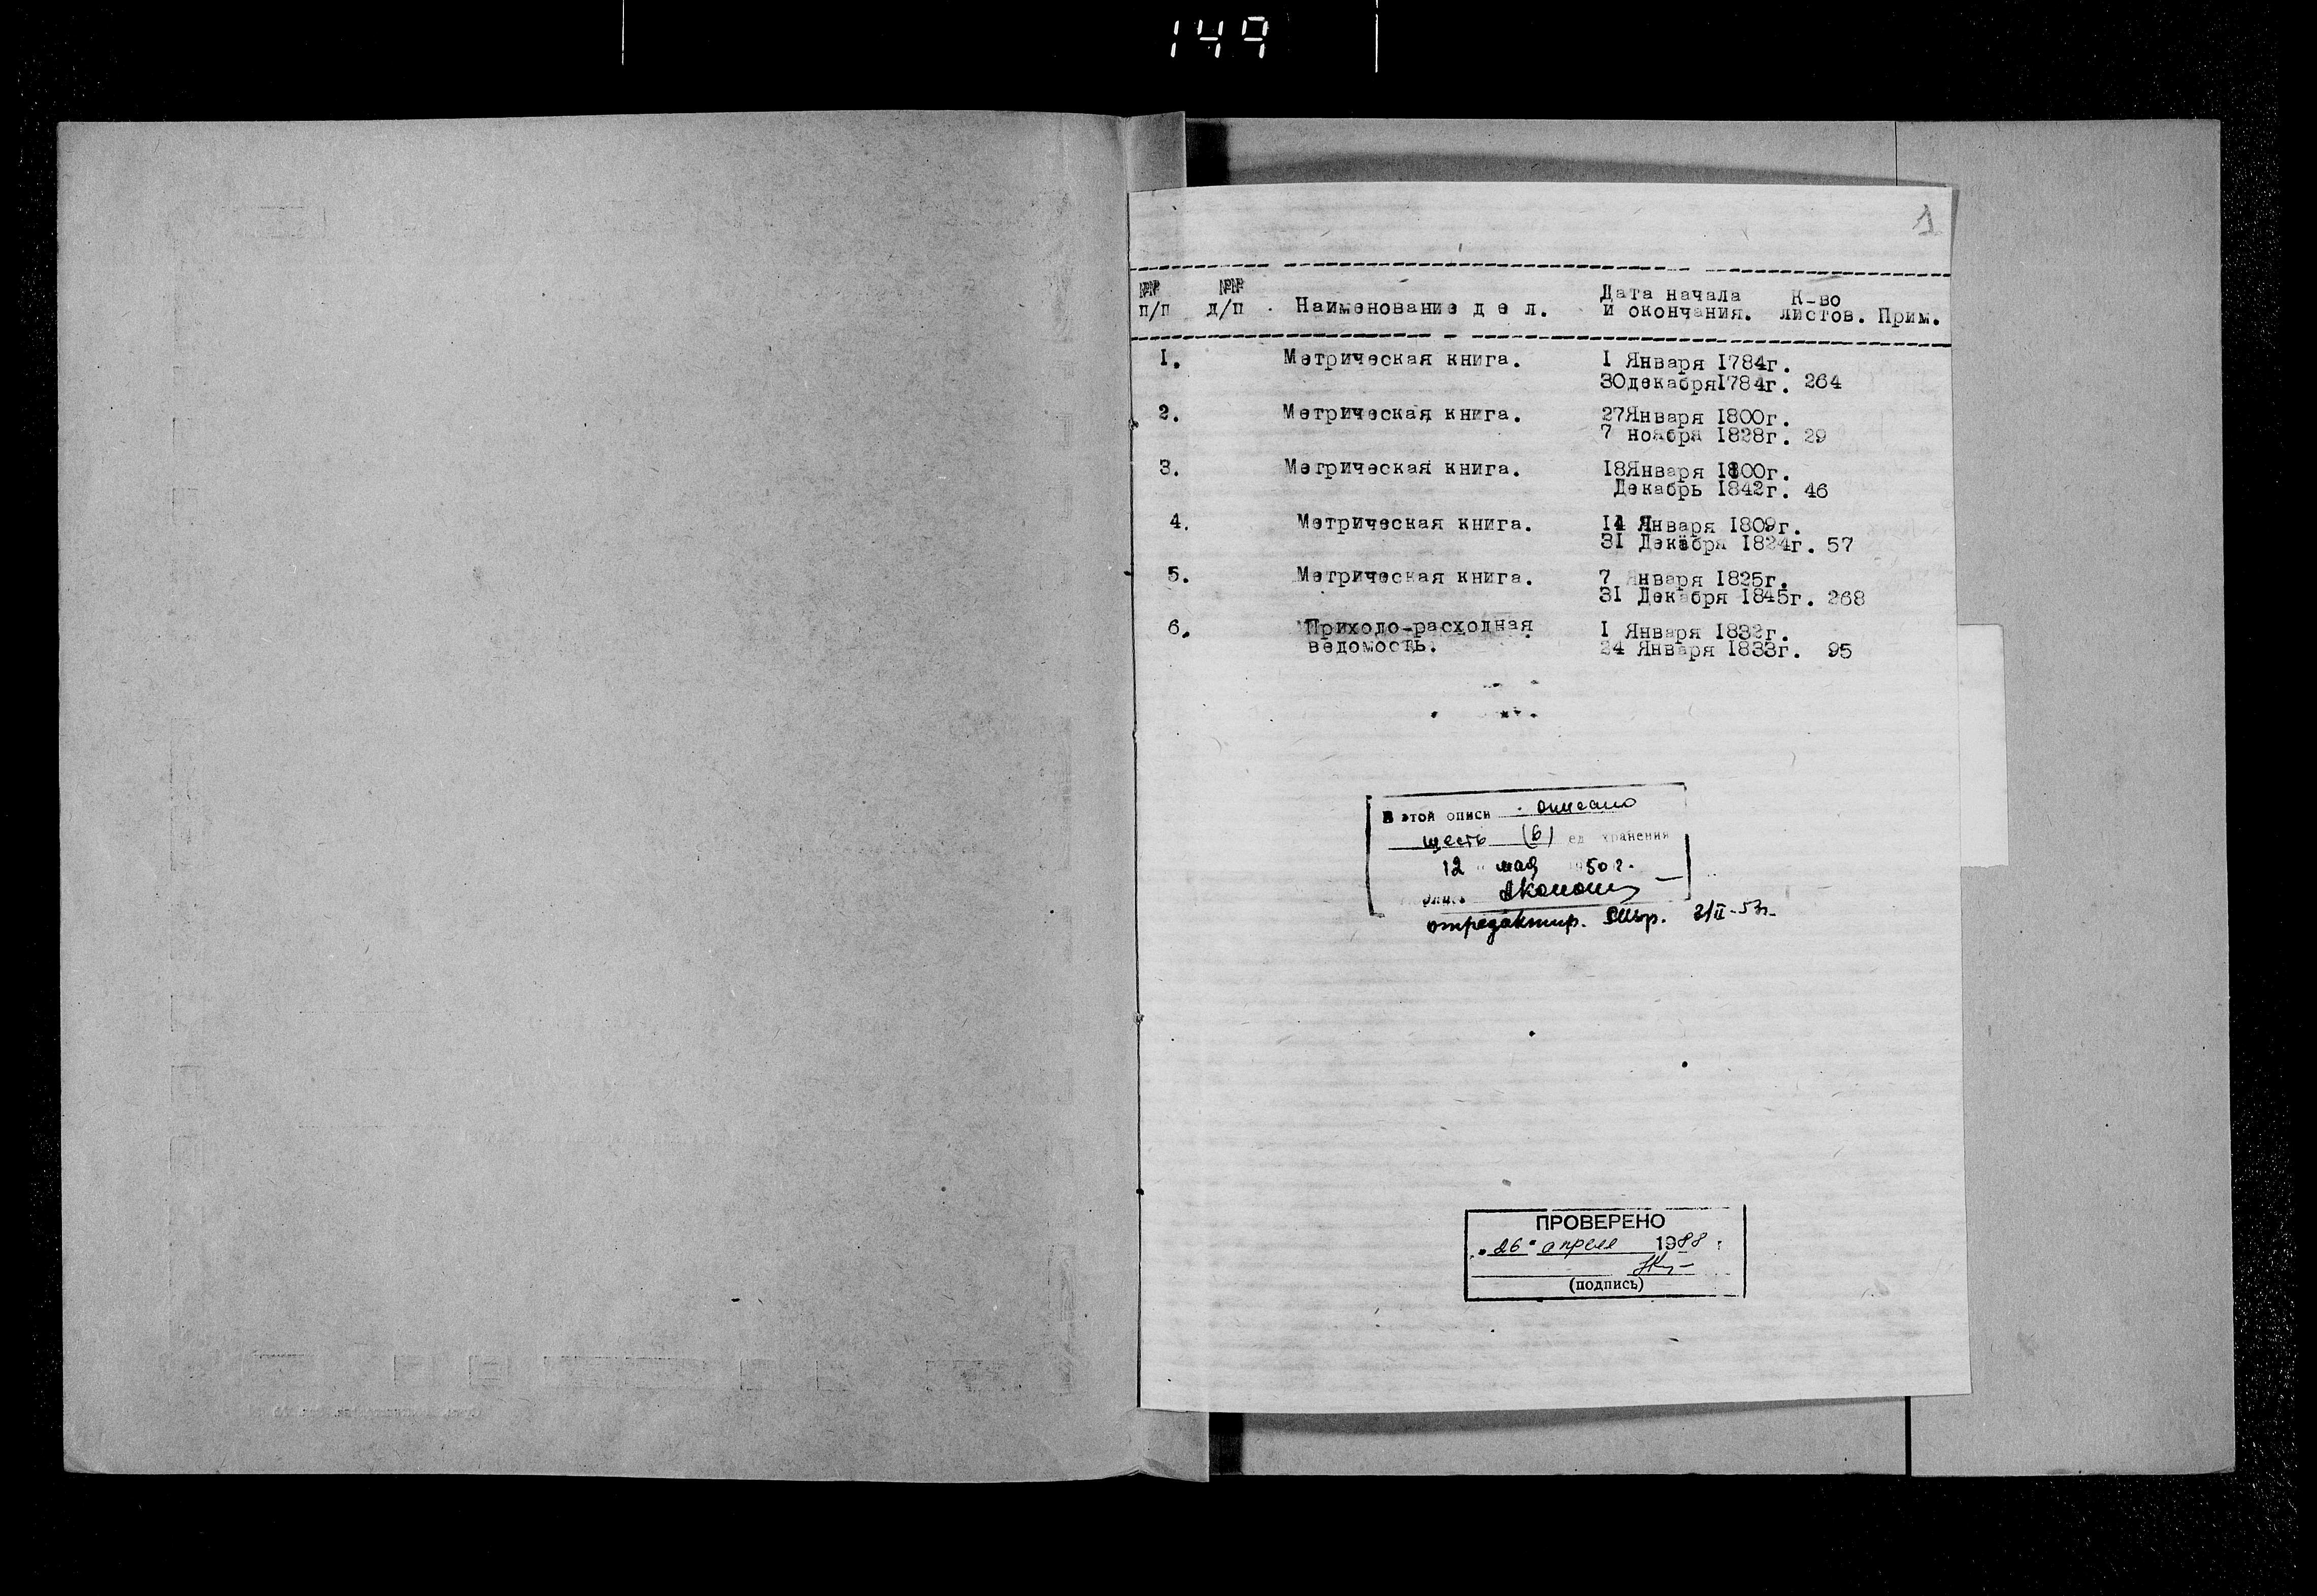 149
1
№№ №№ Дата начала К-во
п/п д/п Наименование д е л. и окончания. листов. Прим.
1. Метрическая книга. 1 Января 1784г.
30декабря1784г. 264
2. Метрическая книга. 27Января 1800г.
7 ноября 1828г. 29
3. Метрическая книга. 18Января 1800г.
Декабрь 1842г. 46
4. Метрическая книга. 14 Января 1809г.
31 Декабря 1824г. 57
5. Метрическая книга. 7 Января 1825г.
31 Декабря 1845г. 268
6. Приходо-расходная 1 Января 1832г.
ведомость. 24 Января 1833г. 95
В этой описи описано
шесть (6) ед хранения
12 мая 1950 г.
отредактир. 2/II-53г.
ПРОВЕРЕНО
"26" апреля 1988 г
(подпись)